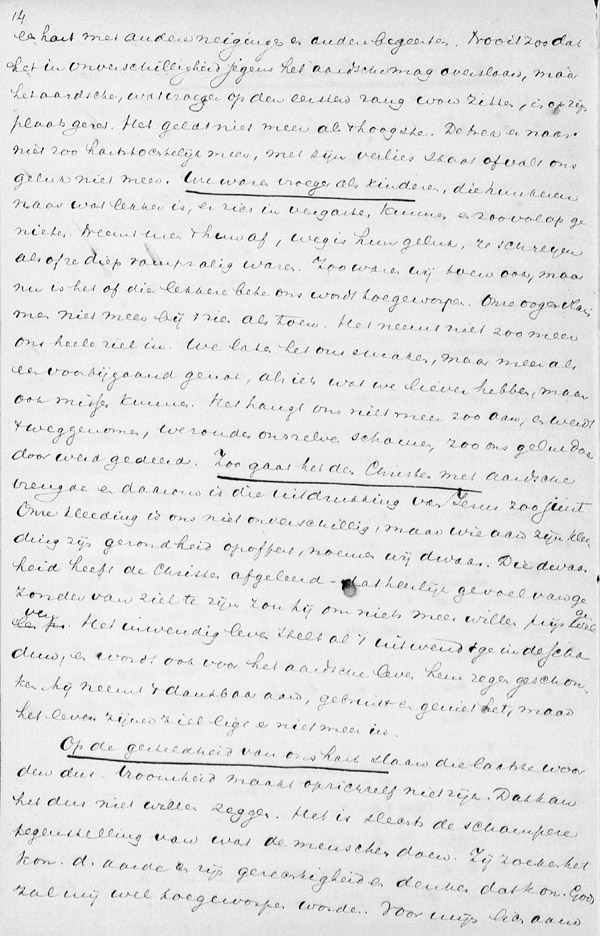 14
een hart met andere neigingen en andere begeerten. Nooit zoo dat
het in onverschilligheid jegens het aardsche mag overslaan, maar
het aardsche, wat vroeger op den eersten rang won zitten, is op zijn
plaats gezet. Het geldt niet meer als 't hoogste. De trek er naar
niet zoo hartstochtelijk meer, met zijn verlies staat of valt ons
geluk niet meer. We waren vroeger als kinderen, die hunkeren
naar wat lekker is, en zien in vergasten kunnen en zoo volop ge
nieten. Neemt men 't hun af, weg is hun geluk, ze schreeuwen
alsof ze diep rampzalig waren. Zoo waren wij toen ook, maar
nu is het of die lekkere bete ons wordt toegeworpen. Onze oogen
men niet meer bij 't zien als toen. Het neemt niet zoo meer
ons heele ziel in. We laten het ons smaken, maar meer als
een voorbijgaand genot, als iets wat we liever hebben, maar
ook missen kunnen. Het hangt ons niet meer zoo aan, en werdt
't weggenomen, we zouden ons zelve schamen, zoo ons geluk daar
door werd gedeerd. Zoo gaat het den Christen met aardsche
vreugde en daarom is die uitdrukking van Jezus zoo juist
Onze kleeding is ons niet onverschillig, maar wie aan zijn klee
ding zijn gezondheid opoffert, noemen wij dwaas. Die dwaas
heid heeft de Christen afgeleerd - dat heerlijk gevoel van ge
zond van ziel te zijn zou hij om niets meer willen prijs geven
. Het inwendig leven stelt al 't uitwendige in de scha
duw, en wordt ook voor het aardsche leven hem zegen geschon
ken hij neemt 't dankbaar aan, gebruikt en geniet het, maar
het leven zijner ziel ligt er niet meer in.
Op de gesteldheid van ons hart slaan die laatste woor
den dus. Armoede maakt op zichzelf niet rijk. Dat kan
het dus niet willen zeggen. Het is slechts de schampere
tegenstelling van wat de menschen doen. Zij zoeken het
kon. d. aarde en zijn gerechtigheid en denken dat kon. Gods
zal mij wel toegeworpen worden. Voor mijn lichaam